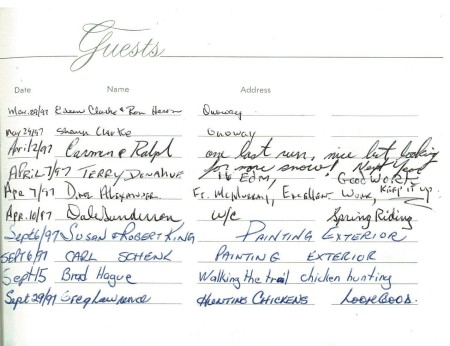 Guests
Date Name Address
Mar. 29/97 Eileen Clarke & Ron Onoway
May 29/97 Shawn Clarke Onoway
April 2/97 Carmen & Ralph one last run, nice but looking
for more snow! Next Year
APRIL 7/97 TERRY DONAHUE EDM, GOOD WORK
Apr 7/97 Dave Alexander Ft. McMurray, Excellent Work, Keep it up.
Apr. 10/97 Dale W/C Spring Riding
Sept 6/97 SUSAN & ROBERT KING PAINTING EXTERIOR
SEPT 6/97 CARL SCHENK PAINTING EXTERIOR
Sept 15 Brad Hague Walking the trail chicken hunting
Sept 29/97 Greg Lawrence HUNTING CHICKENS LOOKS GOOD.